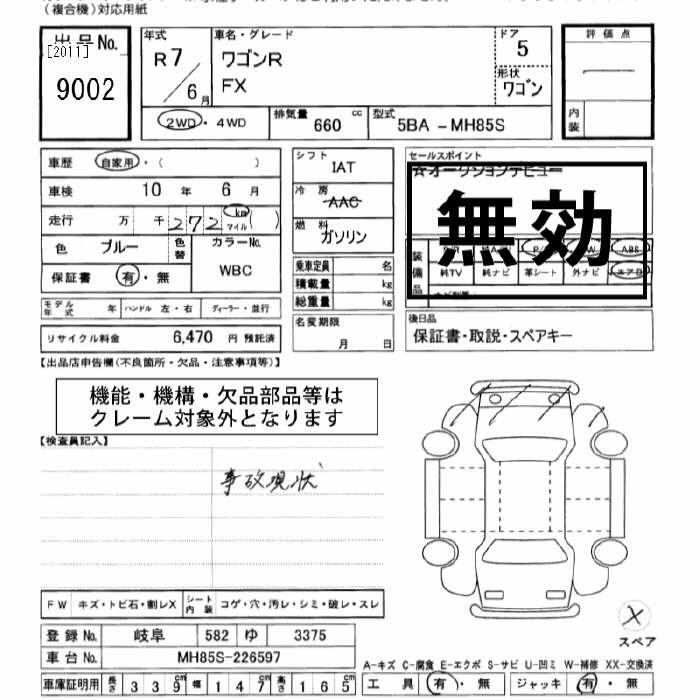 (複合機)対応用紙
出品No. 年式 車名・グレード ドア 評価点
[2011] R7 ワゴンR 5
9002 /6月 FX 形状 ワゴン 内装
2WD・4WD 排気量 660 cc 型式 5BA -MH85S
車歴 自家用・( ) シフト IAT セールスポイント
☆オークションデビュー
車検 10 年 6 月 冷房 AAC 無効
走行 万 千 272 km マイル ( ) 燃料 ガソリン
色 ブルー 色替 カラーNo. 装備品 ABS
保証書 有・無 WBC 乗車定員 名 純TV 純ナビ 革シート 外ナビ エアB
積載量 kg
モデル年式 年 ハンドル 左・右 ディーラー・並行 総重量 kg
リサイクル料金 6,470 円 預託済 名変期限 月 日 後日品
保証書・取説・スペアキー
【出品店申告欄(不良箇所・欠品・注意事項等)】
機能・機構・欠品部品等は
クレーム対象外となります
【検査員記入】
事故現状
FW キズ・トビ石・割レX シート内装 コゲ・穴・汚レ・シミ・破レ・スレ
登録No. 岐阜 582 ゆ 3375 X
スペア
車台No. MH85S-226597
A-キズ C-腐食 E-エクボ S-サビ U-凹ミ W-補修 XX-交換済
車庫証明用 長さ 339cm 幅 147cm 高さ 165cm 工具 有・無 ジャッキ 有・無